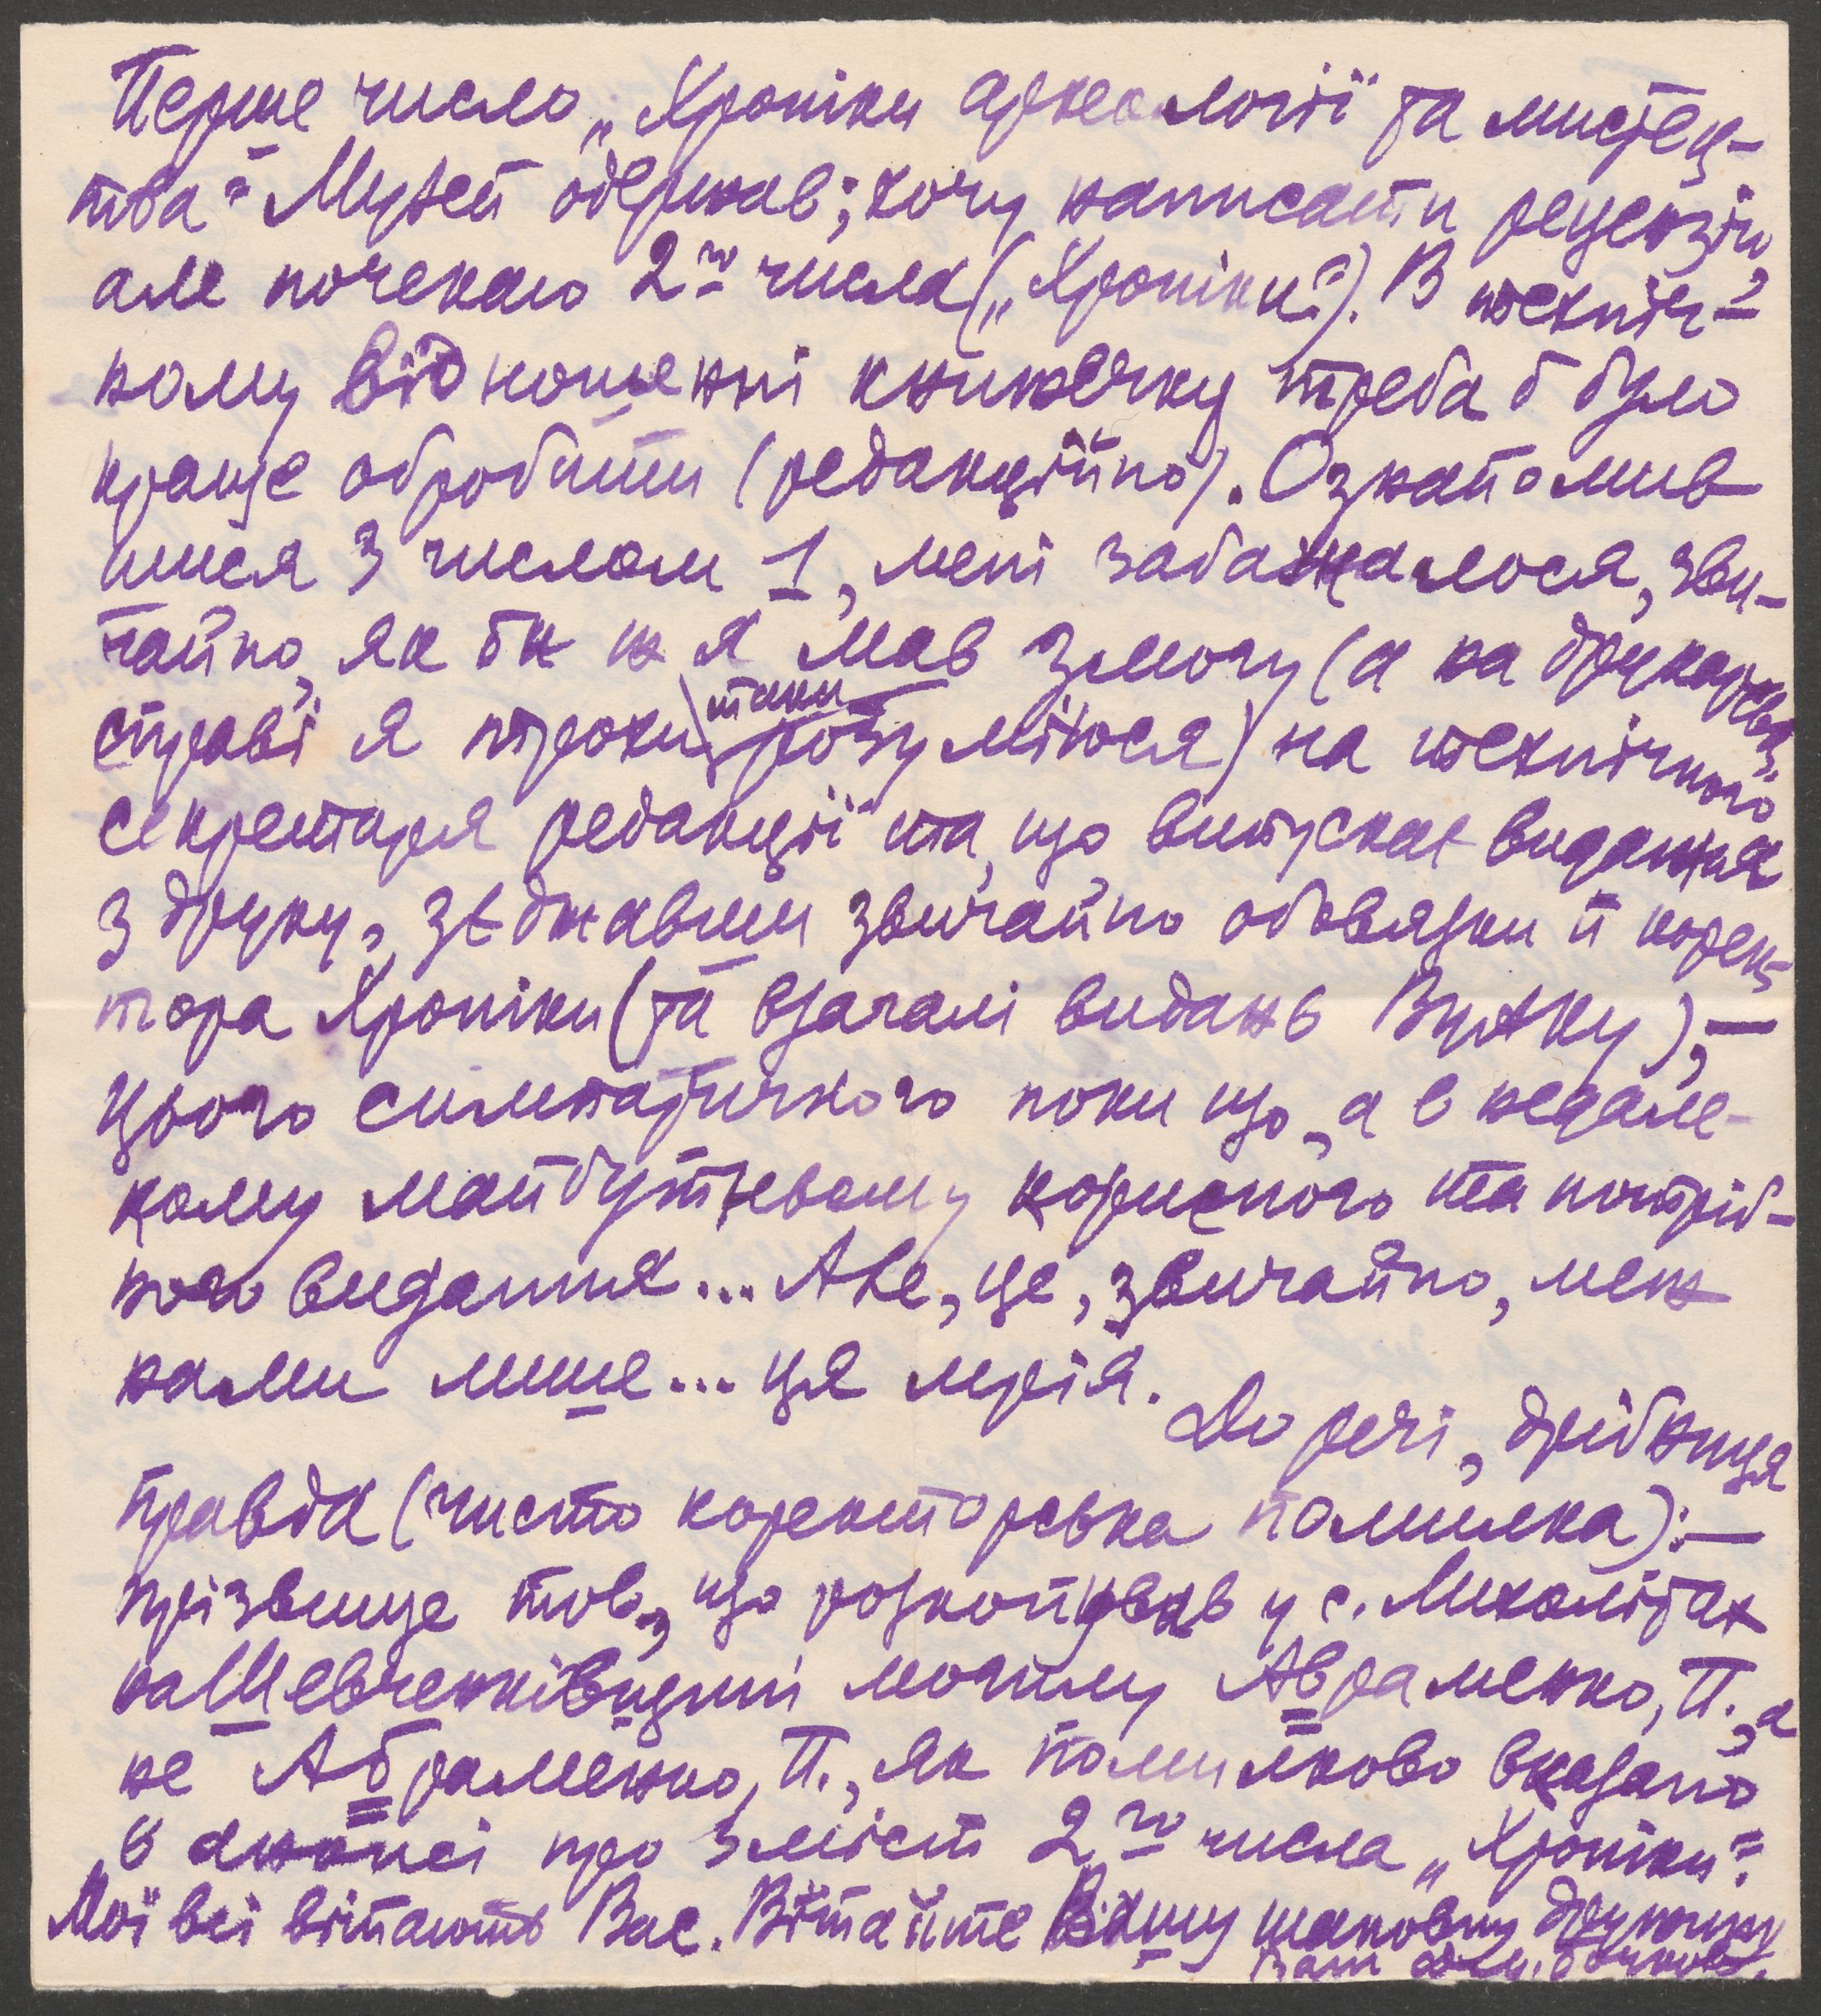 Перше число „Хроніки археології та мистец-
тва" Музей одержав; хочу написати рецензію,
але почекаю 2го числа („Хроніки"). В техніч-
ному відношенні книжечку треба б було
краще обробити (редакційно). Ознайомив
шися з числом 1, мені забажалося, зви-
чайно, як би ж я мав змогу (а на друкарськ.
справі я трохи таки розуміюся) на технічного
секретаря редакції та, що випускає видання
з друку, зєднавши звичайно обовязки й корек-
тора Хроніки (та взагалі видань Вуаку), —
цього симпатичного поки що, а в недале-
кому майбутньовому корисного та потріб-
ного видання... Але, це, звичайно, між
нами лише... ця мрія.
До речі, дрібниця
правда (чисто коректорська помилка): —
прізвище тов., що розкопував у с. Михалівах
на Шевченківщині могилу Авраменко, П., а
не Абраменко, П., як помилково вказано
в анонсі про зміст 2го числа „Хроніки".
Мої всі вітають Вас. Вітайте Вашу шановну дружину
Ваш